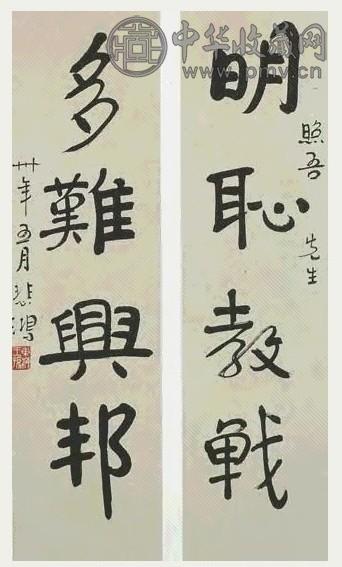 明恥教戰
照吾先生
多難興邦
卅年五月悲鴻
中华收藏网
www.pmv.cn